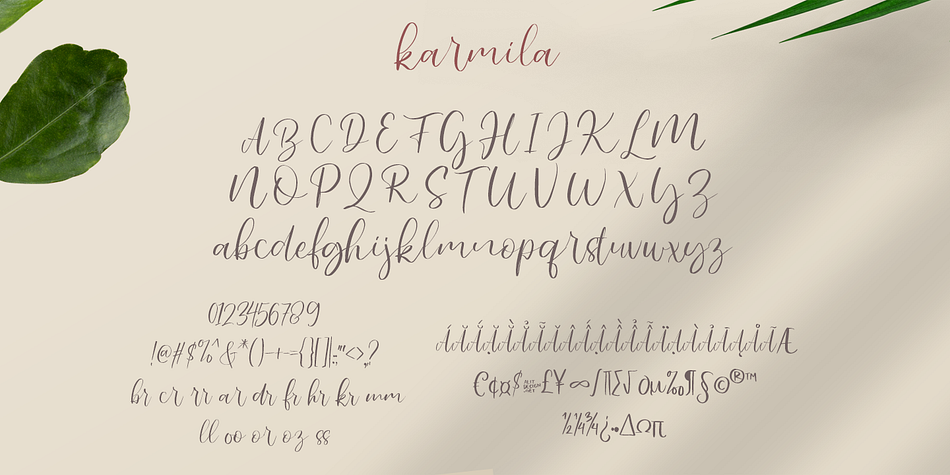 karmila
ABCDEFGHIJKLM
NOPQRSTUVWXYZ
abcdefghijklmnopqrstuvwxyz
0123456789
!@#$%^&*()-+={}[]:;"'<>,?
br cr rr ar dr fr hr kr mm
ll oo or oz ss
Æ
€¢¤$£¥∞∫∏∑√∂µ‰¶§©®™
½¼¾¿•∆Ωπ